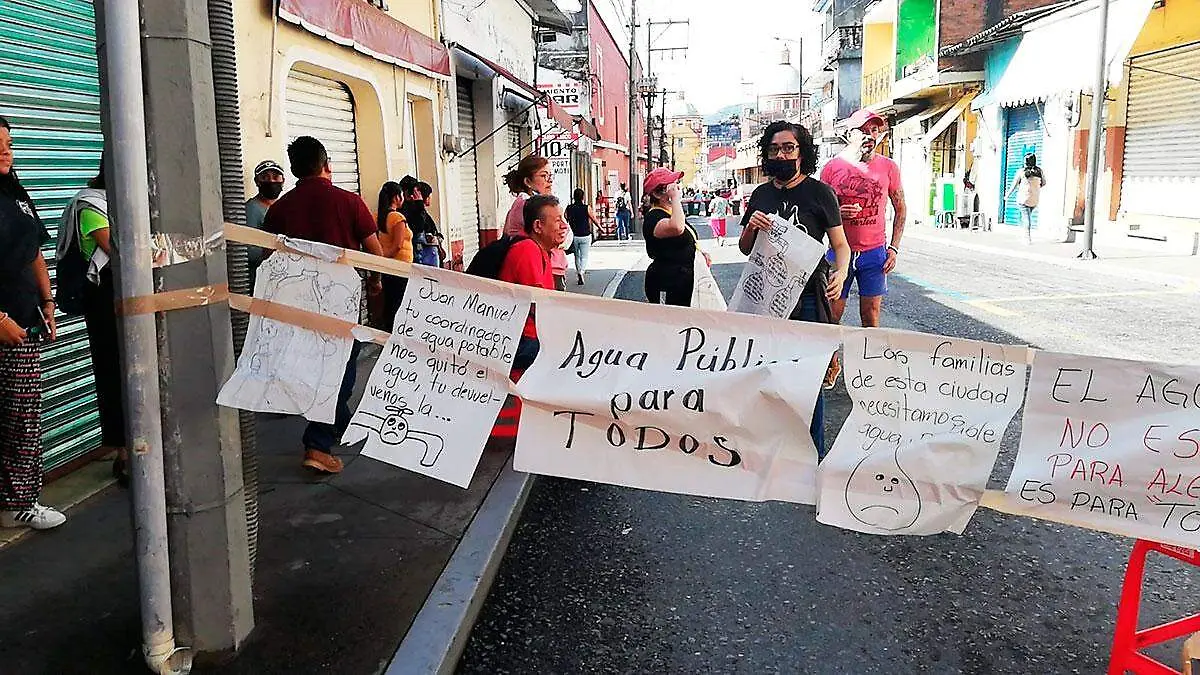 Juan Manuel
tu coordinador
de agua potable
nos quitó el
agua, tu devuel-
venos la...
Agua Públi
para
TODOS
Las familias
de esta ciudad
necesitamos
agua,
EL AG
NO ES
PARA ALE
ES PARA TO
10